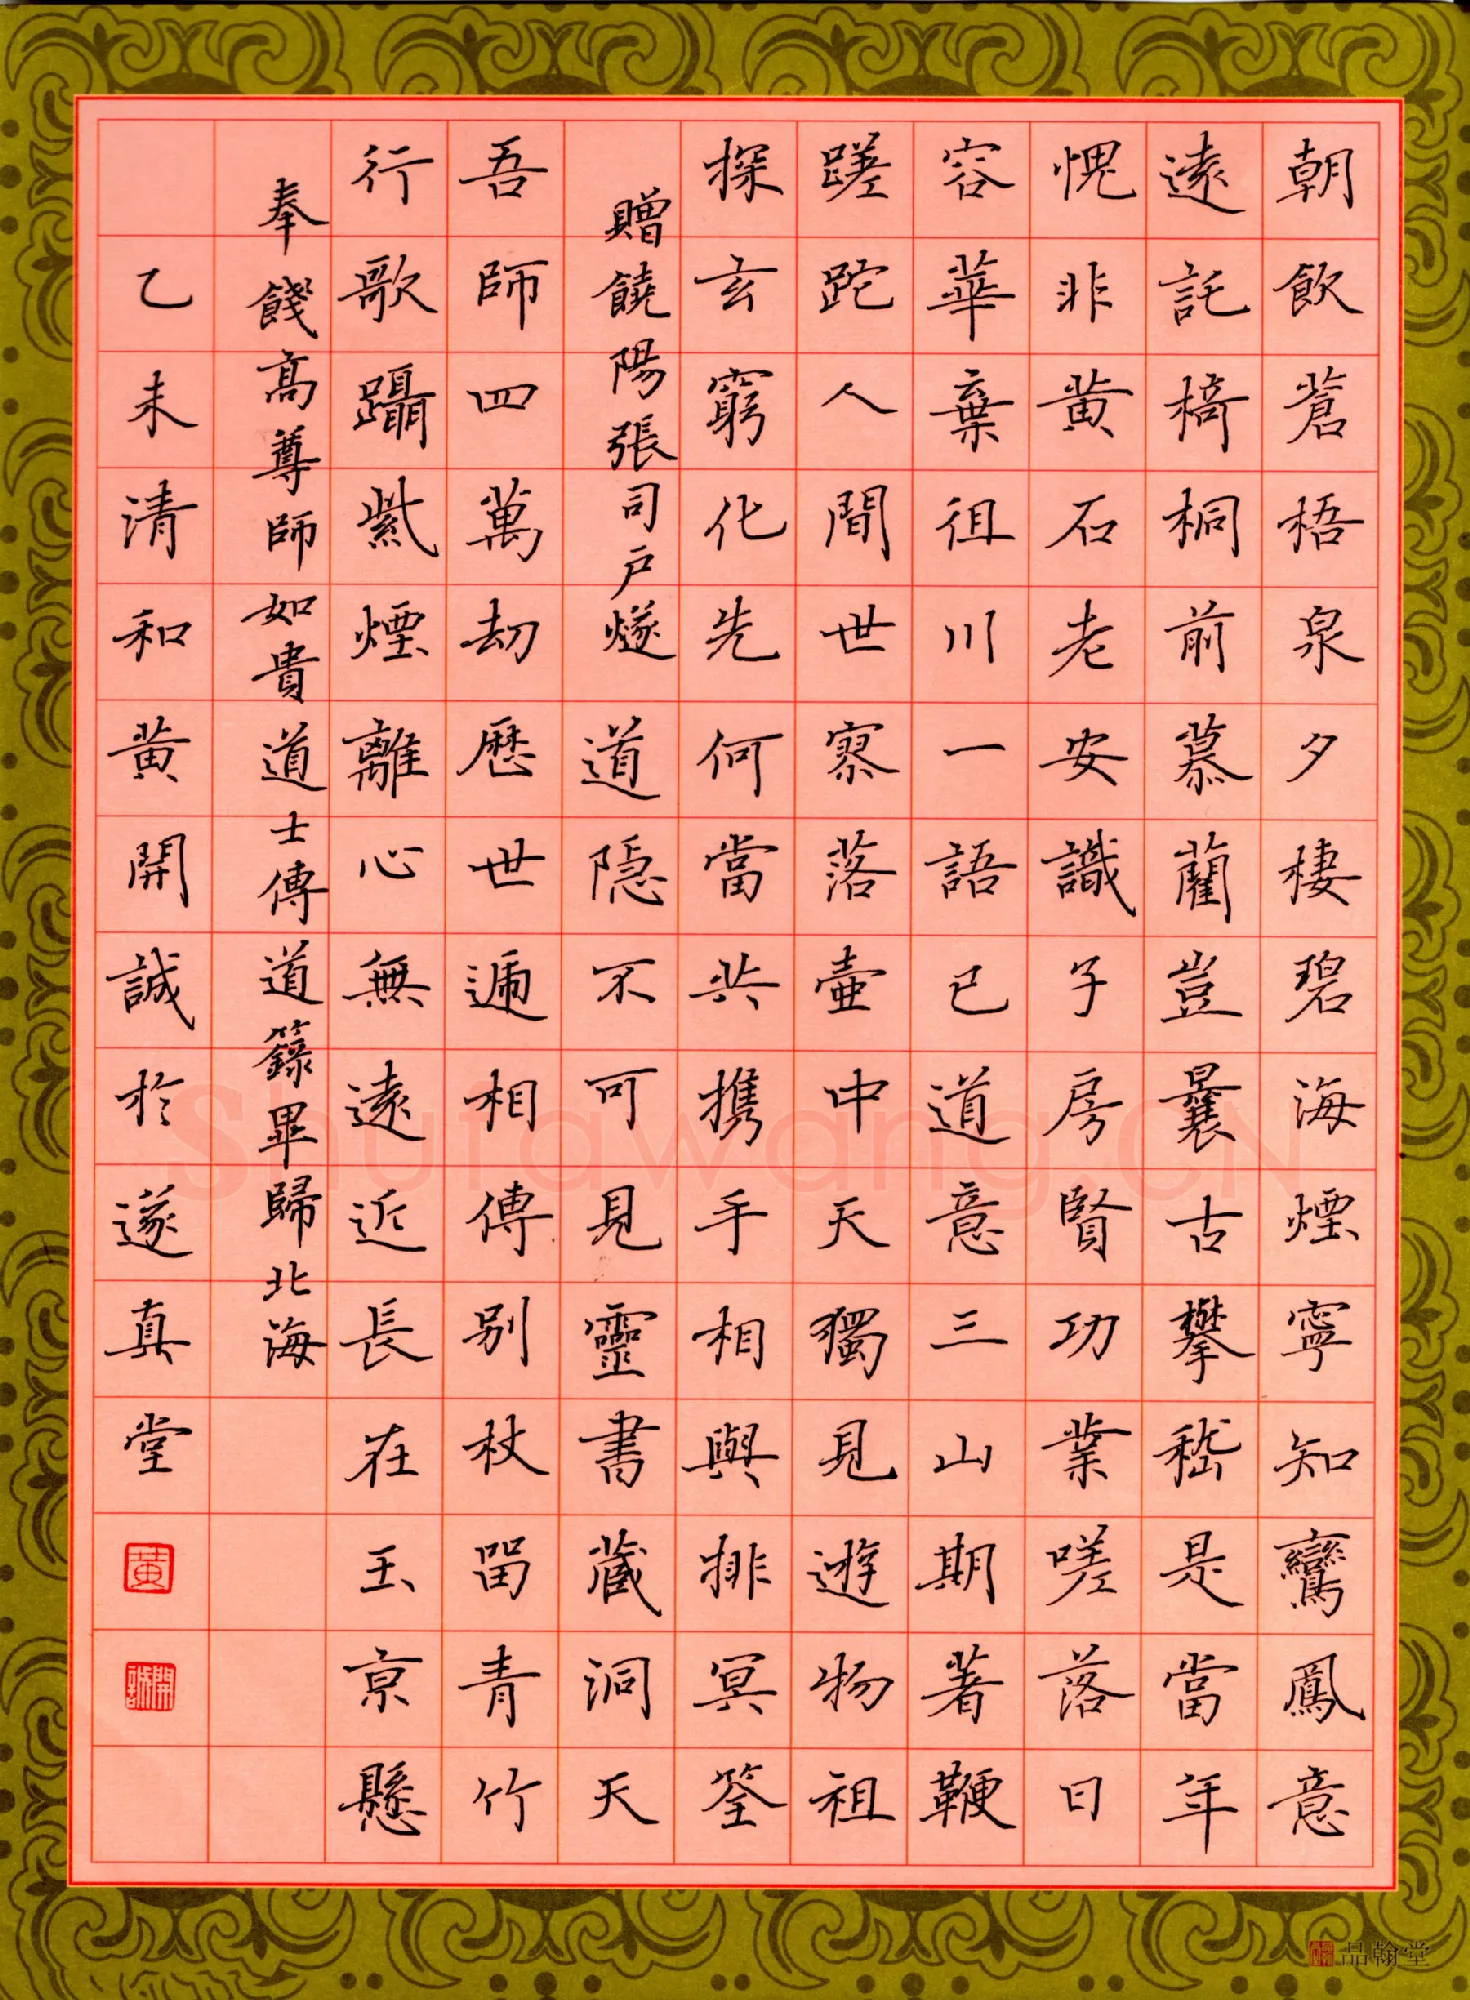 朝飲蒼梧泉夕棲碧海煙寧知鸞鳳意
遠託椅桐前慕藺豈曩古攀嵇是當年
愧非黄石老安識子房賢功業嗟落日
容華棄徂川一語已道意三山期著鞭
蹉跎人間世寥落壺中天獨見遊物祖
探玄窮化先何當共携手相與排冥筌
贈饒陽張司户燧 道隐不可見靈書藏洞天
吾師四萬劫歷世遞相傳别杖留青竹
行歌躡紫煙離心無遠近長在玉京懸
奉餞高尊師如貴道士傳道籙畢歸北海
乙未清和黄開誠於遂真堂
黄
開誠
Shufawang.CN
品翰堂